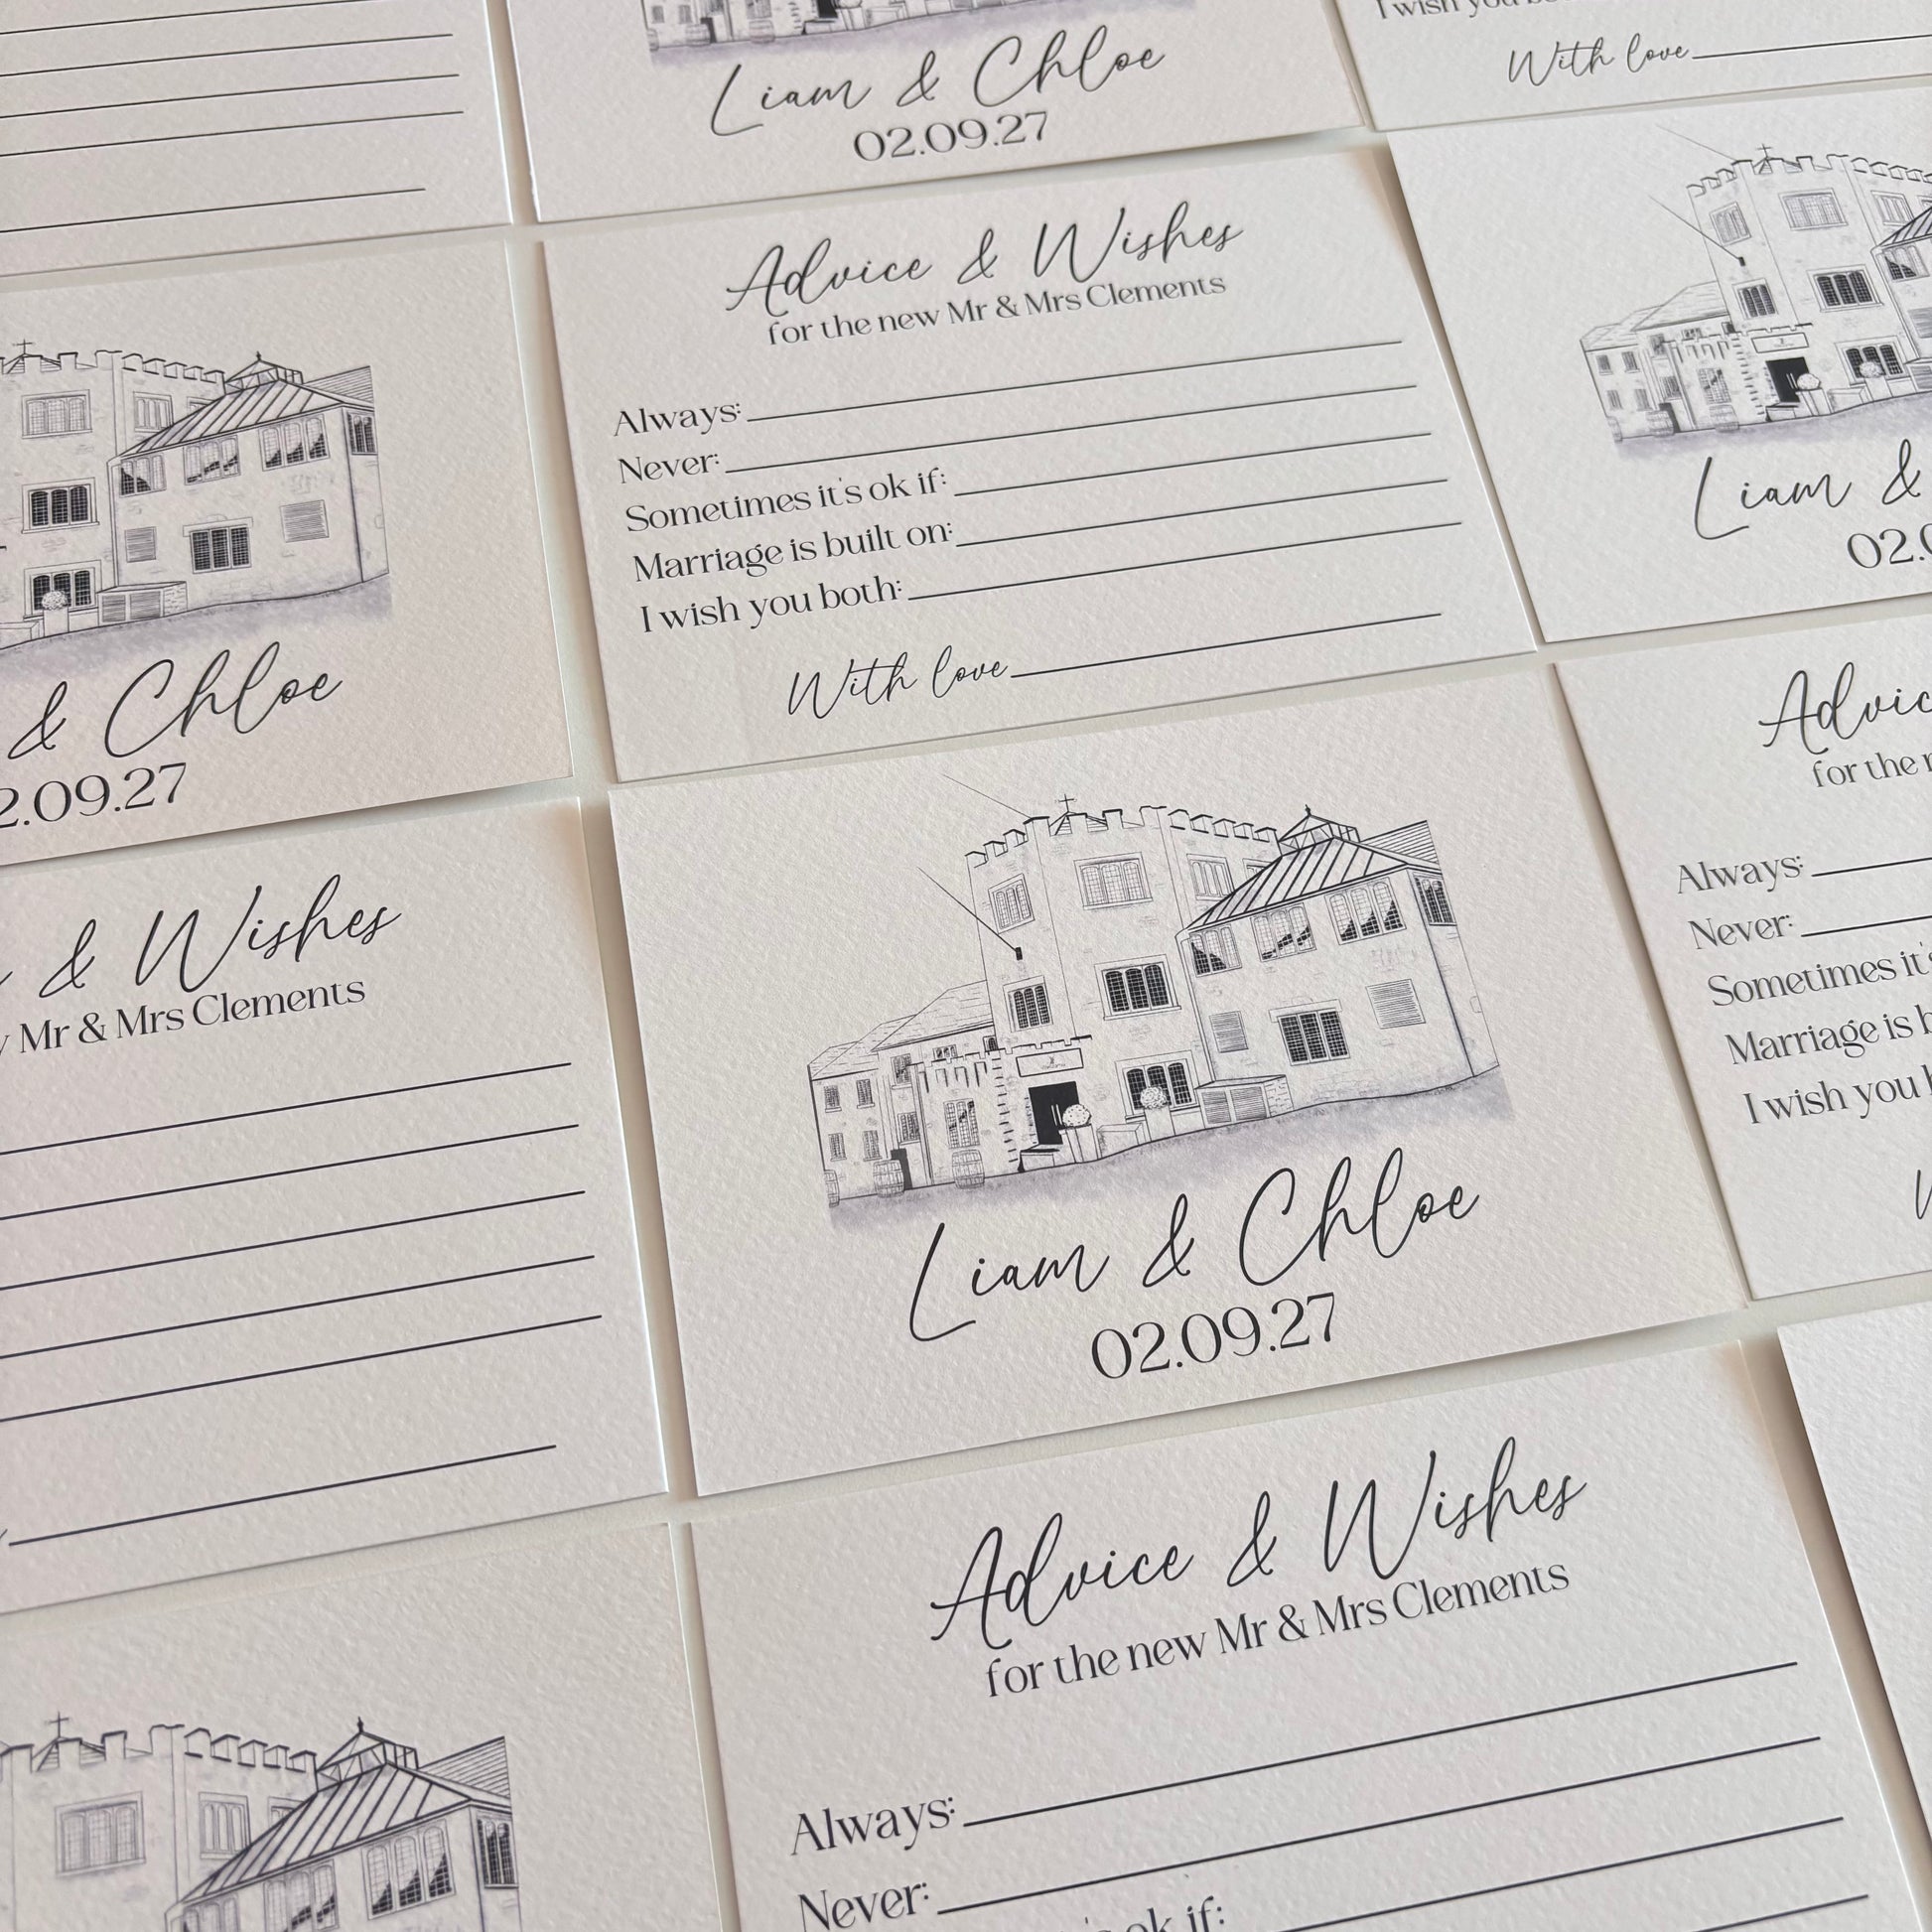 Liam & Chloe
02.09.27
I wish you
With love
Advice & Wishes
for the new Mr & Mrs Clements
Always:
Never:
Sometimes it's ok if:
Marriage is built on:
I wish you both:
With love
Liam &
02.
& Chloe
2.09.27
& Wishes
Mr & Mrs Clements
Liam & Chloe
02.09.27
Advic
for the
Always:
Never:
Sometimes it's
Marriage is b
I wish you b
Advice & Wishes
for the new Mr & Mrs Clements
Always:
Never:
's ok if: